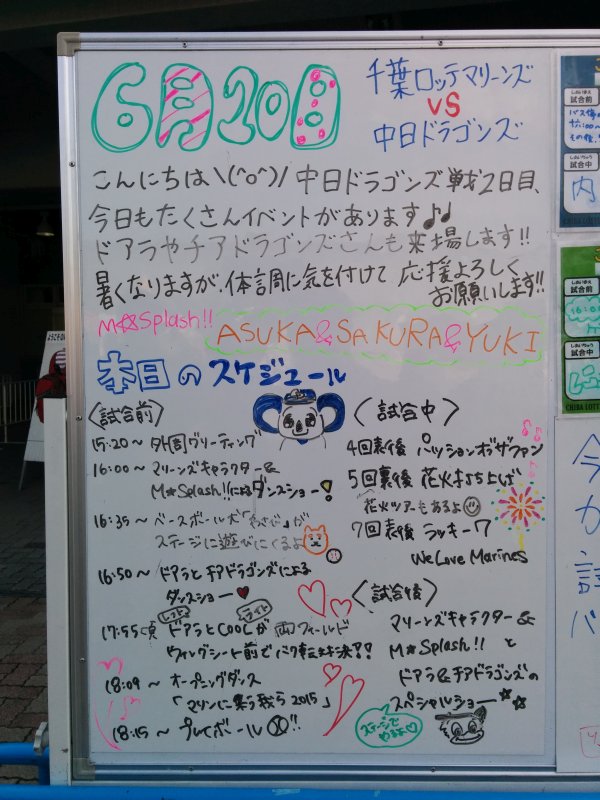 6月20日
千葉ロッテマリーンズ
VS
中日ドラゴンズ
こんにちは\(^o^)/ 中日ドラゴンズ戦2日目、
今日もたくさんイベントがあります♪♪
ドアラやチアドラゴンズさんも来場します!!
暑くなりますが、体調に気を付けて 応援よろしく
お願いします!!
M☆Splash!!
ASUKA&SAKURA&YUKI
本日のスケジュール
〈試合前〉
15:20〜 外周グリーティング
16:00〜 マリーンズキャラクター&
M★Splash!!によるダンスショー!
16:35〜 ベースボール犬「わさび」が
ステージに遊びにくるよ
16:50〜 ドアラとチアドラゴンズによる
ダンスショー♥
レフト
ライト
17:55頃 ドアラとCOOLが 両フィールド
ウィングシート前でバク転対決??
18:09〜 オープニングダンス
「マリンに集う我ら2015」
18:15〜 プレイボール!!
〈試合中〉
4回表後 パッションオブザファン
5回裏後 花火打ち上げ
花火ツアーもあるよ
7回表後 ラッキー7
We Love Marines
〈試合後〉
マリーンズキャラクター&
M★Splash!! と
ドアラ&チアドラゴンズの
スペシャルショー☆☆
ステージで
やるよ♡
試合前
試合中
内
試合前
試合中
CHIBA LOTTE